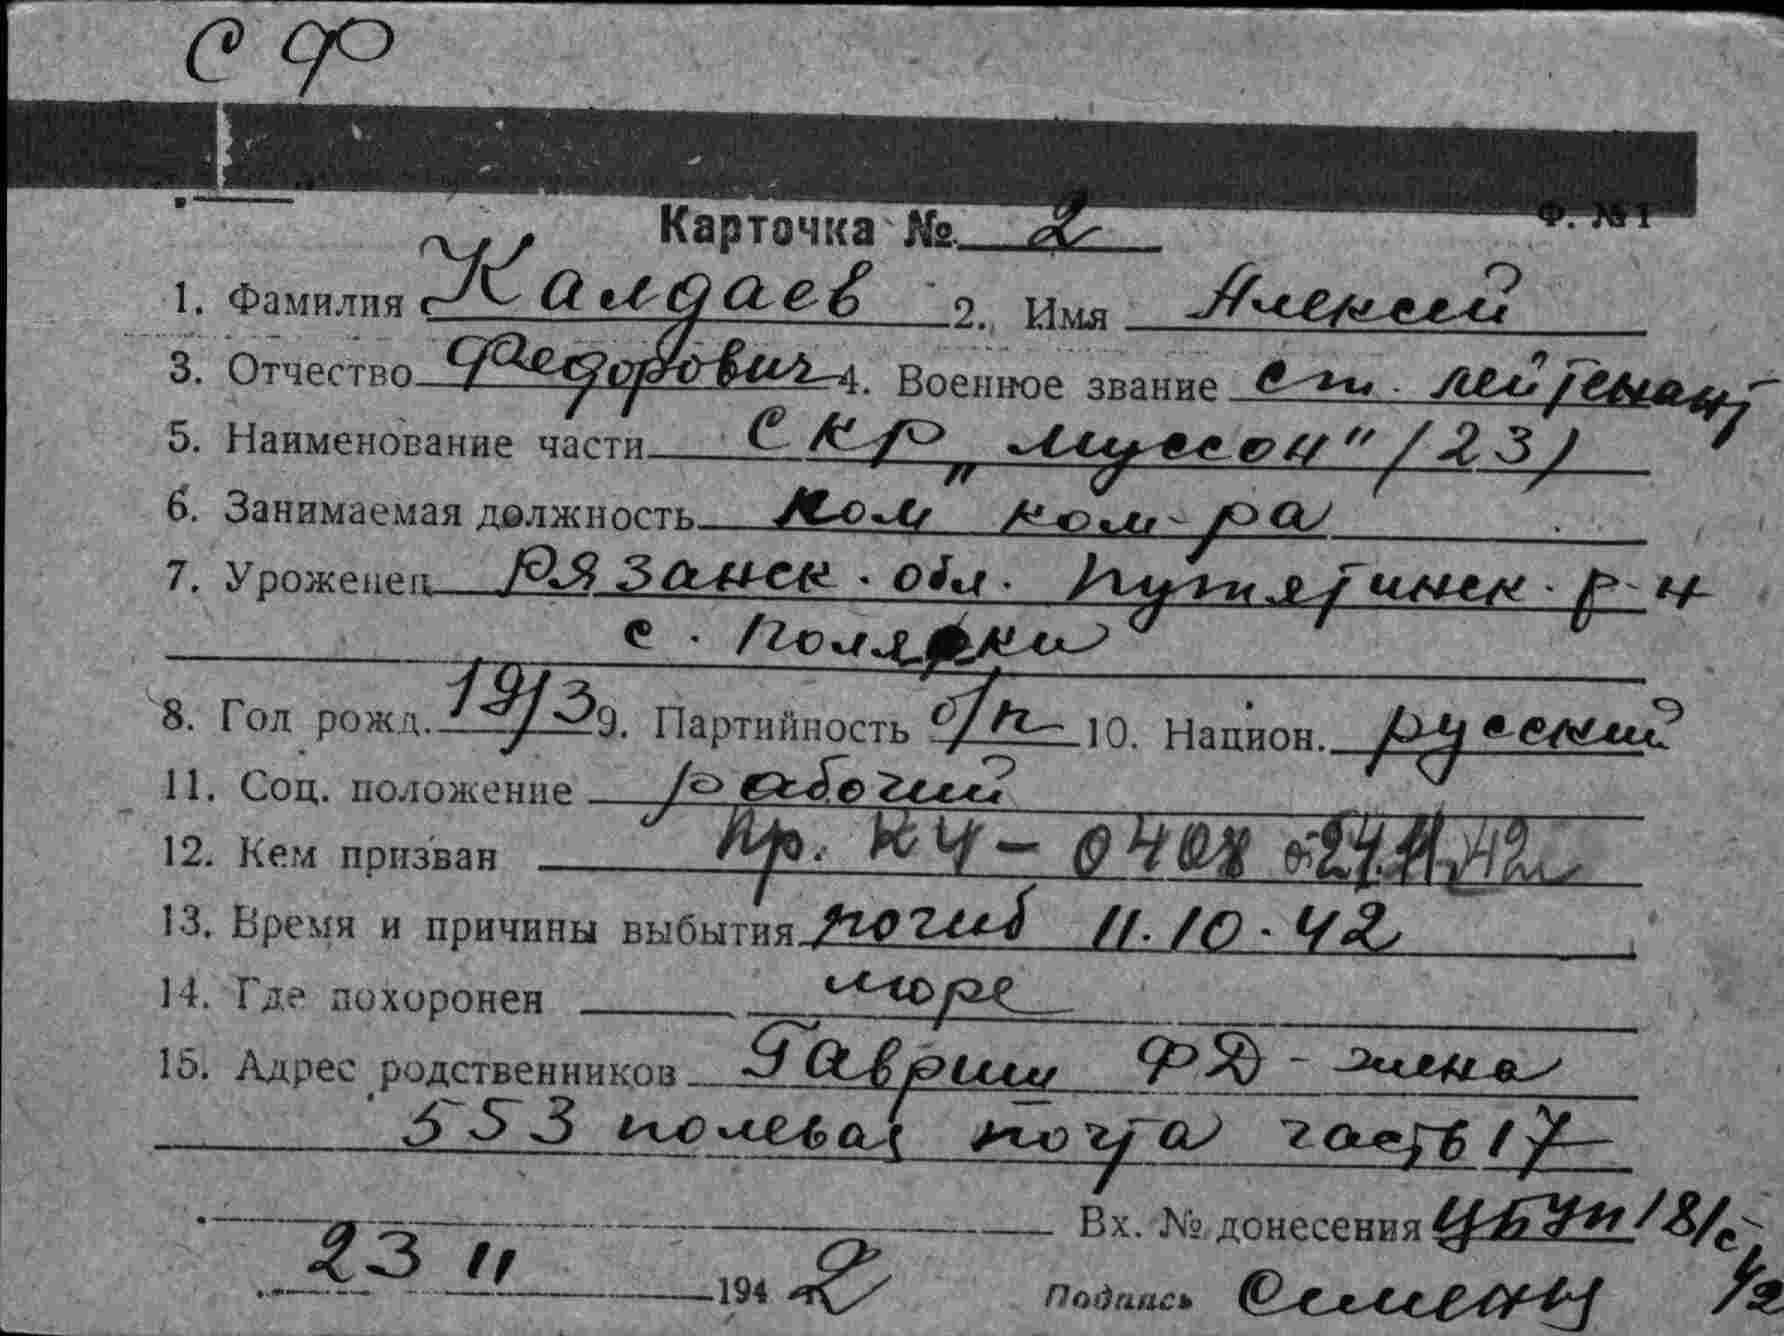 С Ф
Ф. №1
Карточка № 2
1. Фамилия Калдаев 2. Имя Алексей
3. Отчество Федорович 4. Военное звание ст. лейтенант
5. Наименование части СКР „Муссон" (23)
6. Занимаемая должность пом ком-ра
7. Уроженец Рязанск. обл. Путятинск. р-н
с. Полянки
8. Год рожд. 1913 9. Партийность б/п 10. Национ. русский
11. Соц. положение рабочий
12. Кем призван пр. НЧ-0408 24.11.42
13. Время и причины выбытия погиб 11.10.42
14. Где похоронен море
15. Адрес родственников Гавриш ФД - жена
553 полевая почта часть 17
Вх. № донесения 18/с
23 11 1942 Подпись